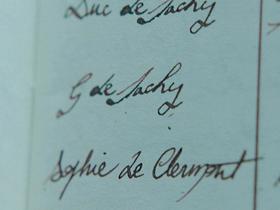 Duc de Sachy
G de Sachy
Sophie de Clermont